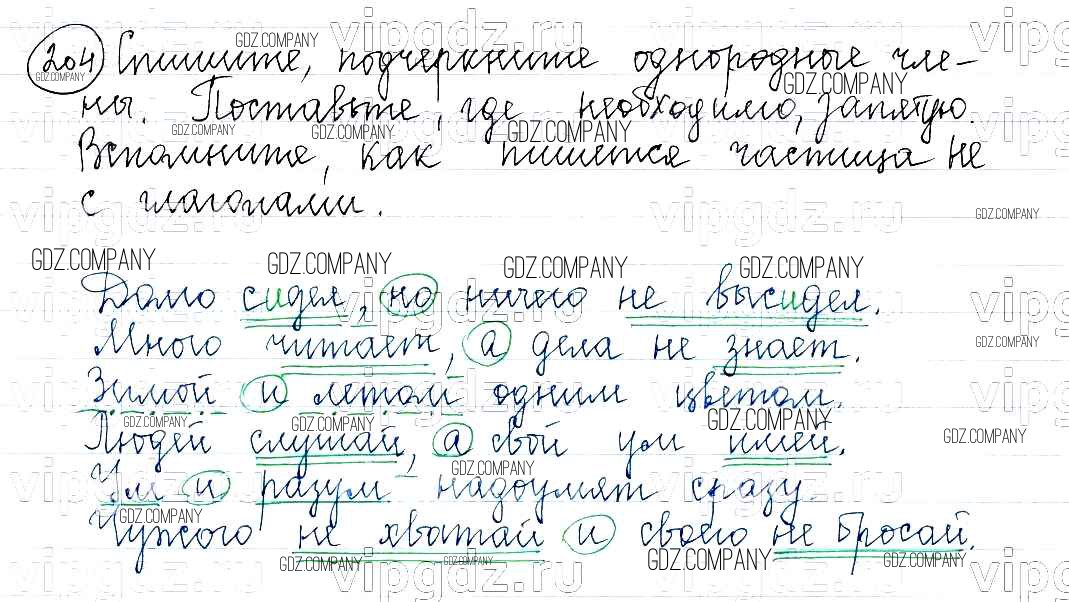 204 Спишите, подчеркните однородные чле-
ны. Поставьте, где необходимо, запятую.
Вспомните, как пишется частица не
с глаголами.
Долго сидел, но ничего не высидел.
Много читает, а дела не знает.
Зимой и летом одним цветом.
Людей слушай, а свой ум имей.
Ум и разум надоумят сразу.
Чужого не хватай и своего не бросай.
vipgdz.ru
GDZ.COMPANY